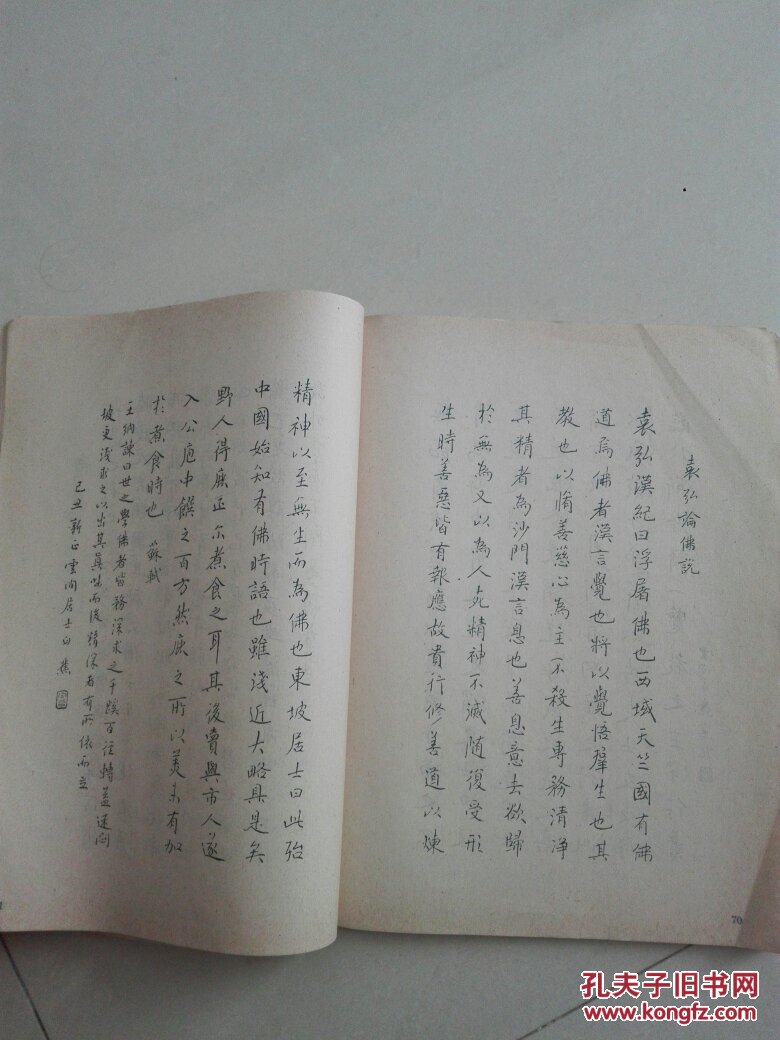 袁弘論佛說
袁弘漢紀曰浮屠佛也西域天竺國有佛
道焉佛者漢言覺也將以覺悟羣生也其
教也以脩善慈心為主不殺生專務清淨
其精者為沙門漢言息也善息意去欲歸
於無為又以為人死精神不滅隨復受形
生時善惡皆有報應故貴行修善道以煉
70
精神以至無生而為佛也東坡居士曰此殆
中國始知有佛時語也雖淺近大略具是矣
野人得鹿正尒煮食之耳其後賣與市人遂
入公庖中饌之百方然鹿之所以美未有加
於煮食時也 蘇軾
王納諫曰世之學佛者皆務深求之千蹊百徑轉益迷悶
坡更淺求之以出其真味而後精深者有所依而立
己丑新正雲間居士白蕉
孔夫子旧书网
www.kongfz.com